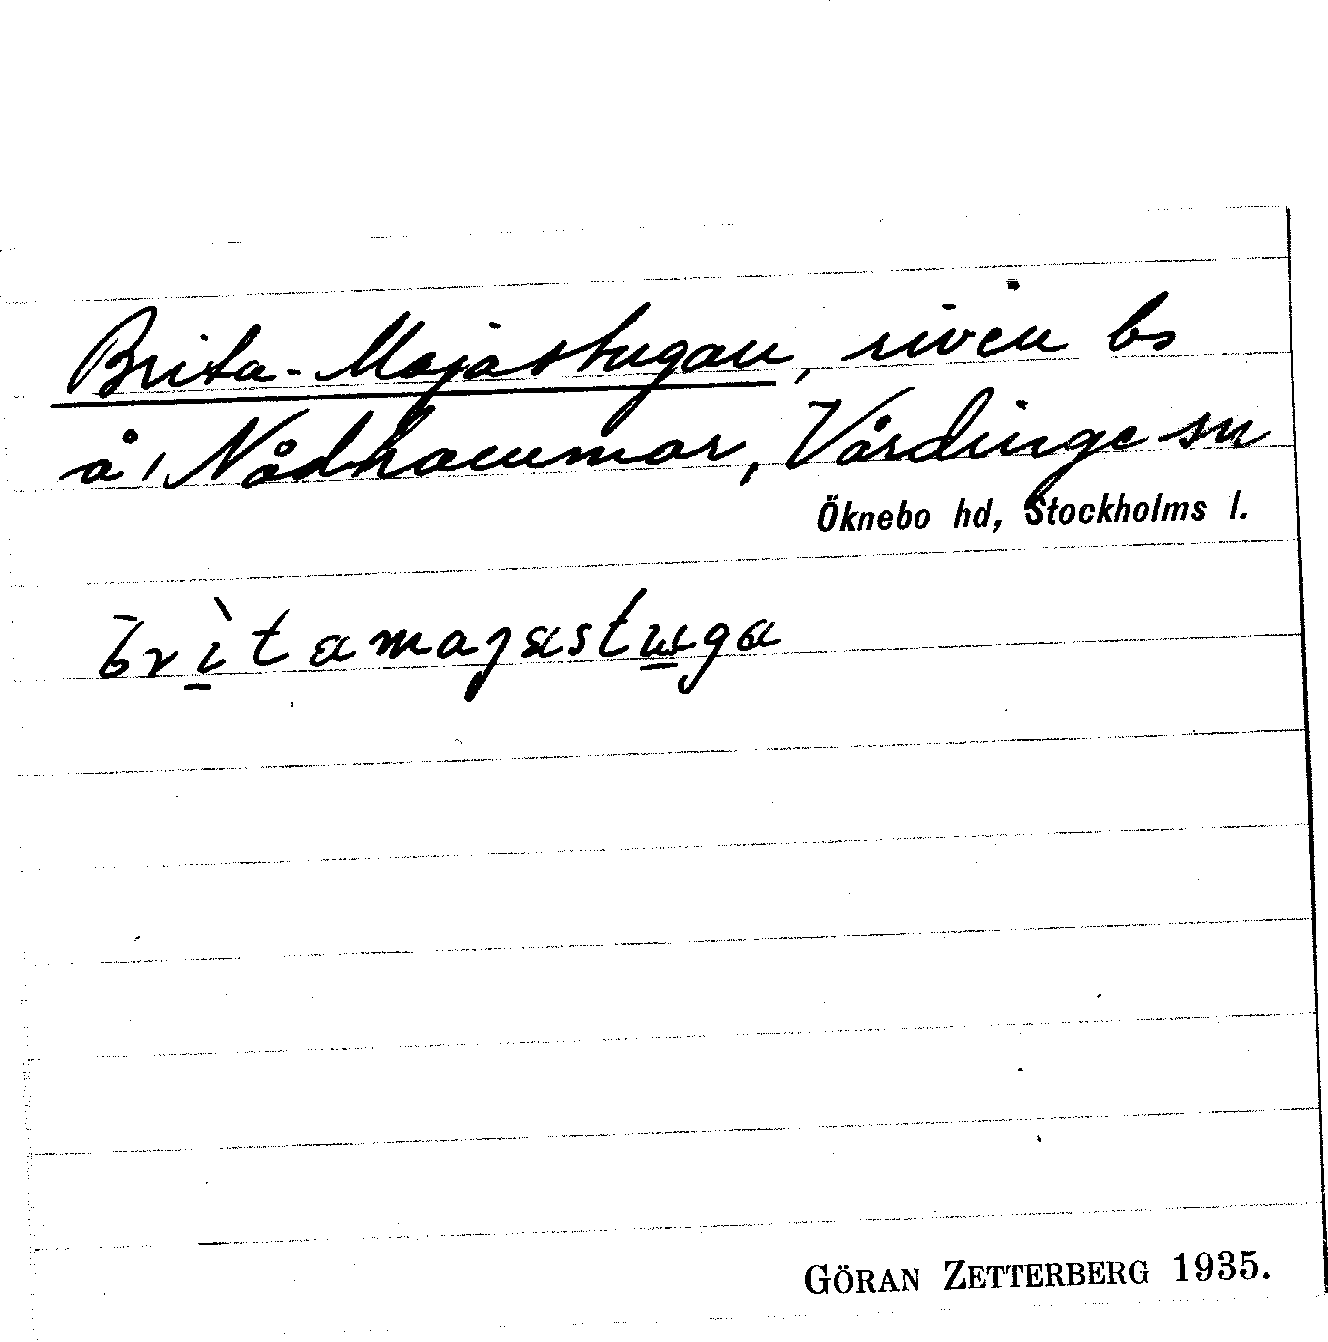 Brita-Majastugan, riven bs
å 1 Nådhammar, Vårdinge sn
Öknebo hd, Stockholms l.
britamajastuga
GÖRAN ZETTERBERG 1935.